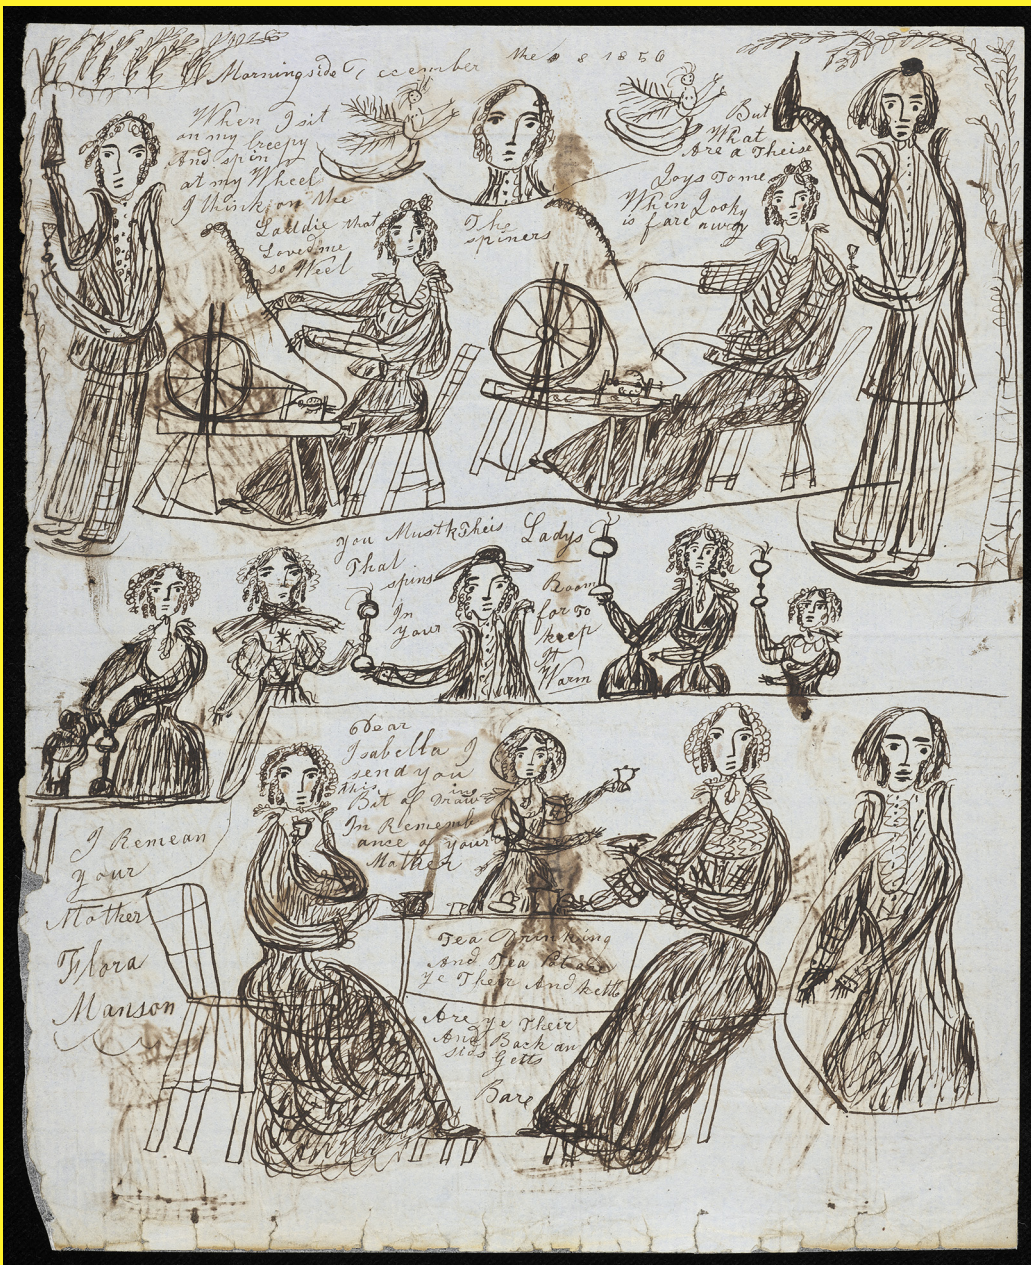 Morningside December the 8 1856
When I sit
on my creepy
And spin
at my Wheel
I think on the
Laddie that
Loved me
so Weel
The
spiners
But
What
Are a Theise
Joys To me
When Jooky
is fare away
You Must k Theis Ladys
That
spins
In
your
Room
for To
keep
It
Warm
Dear
Isabella I
send you
this
Bit of Drawing
In Rememb
ance of your
Mother
I Remean
your
Mother
Flora
Manson
Tea Drinking
And Tea
Ye Their And kettle
Are ye Their
And Back an
sids Getts
Bare